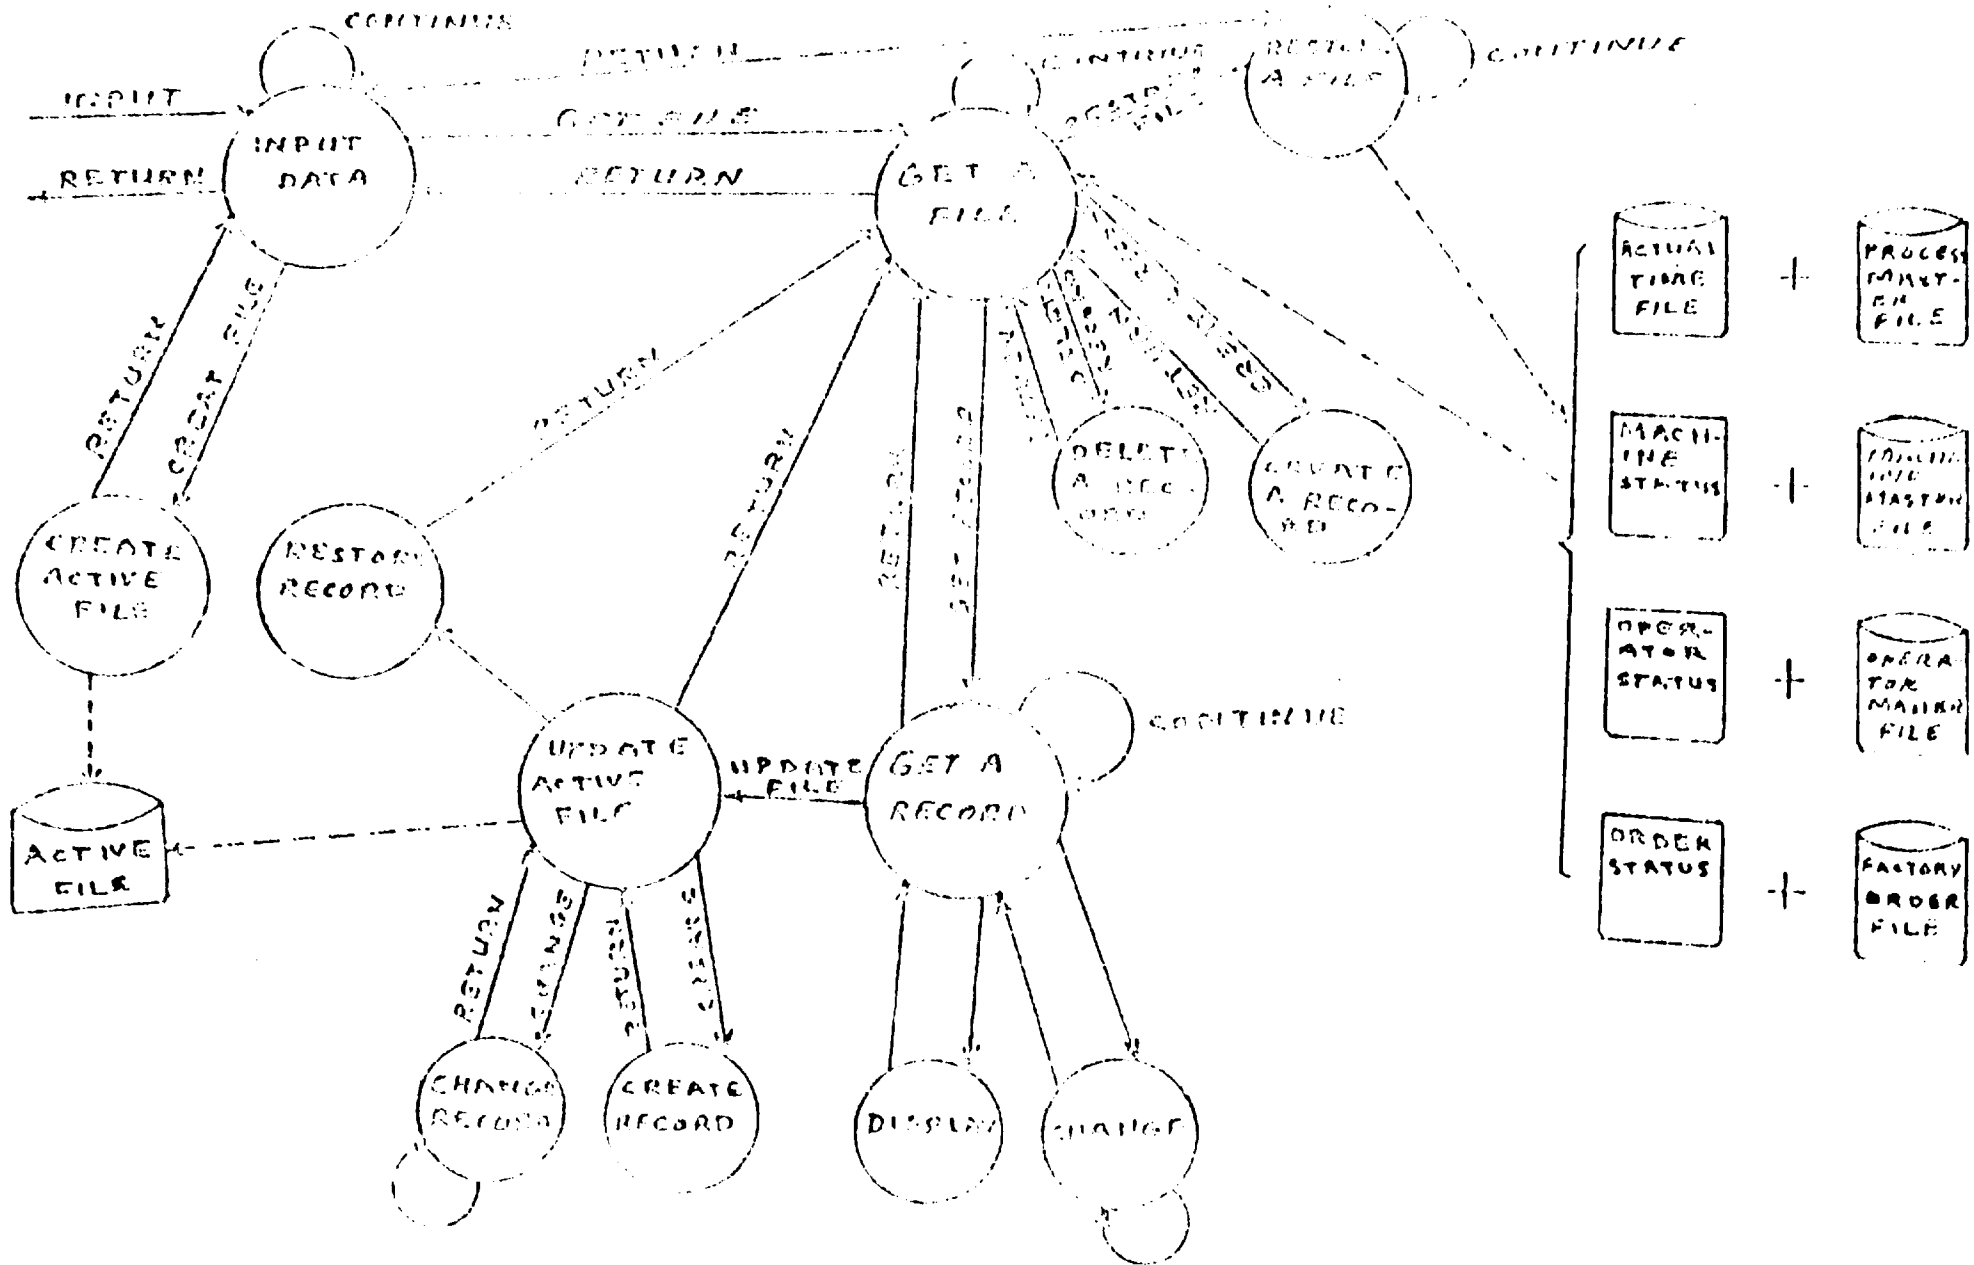 CONTINUE
RETURN
INPUT
INPUT
DATA
RETURN
GET FILE
RETURN
CONTINUE
GET A
FILE
A FILE
CONTINUE
RETURN
CREAT FILE
RETURN
RETURN
RETURN
RETURN
CREATE
ACTIVE
FILE
RESTORE
RECORD
DELETE
A REC-
ORD
CREATE
A RECO-
RD
ACTIVE
FILE
UPDATE
ACTIVE
FILE
UPDATE
FILE
GET A
RECORD
CONTINUE
RETURN
CHANGE
RETURN
CREATE
CHANGE
RECORD
CREATE
RECORD
DISPLAY
CHANGE
ACTUAL
TIME
FILE
+
PROCESS
MAST-
ER
FILE
MACH-
INE
STATUS
+
MACH-
INE
MASTER
FILE
OPER-
ATOR
STATUS
+
OPERA-
TOR
MASTER
FILE
ORDER
STATUS
+
FACTORY
ORDER
FILE